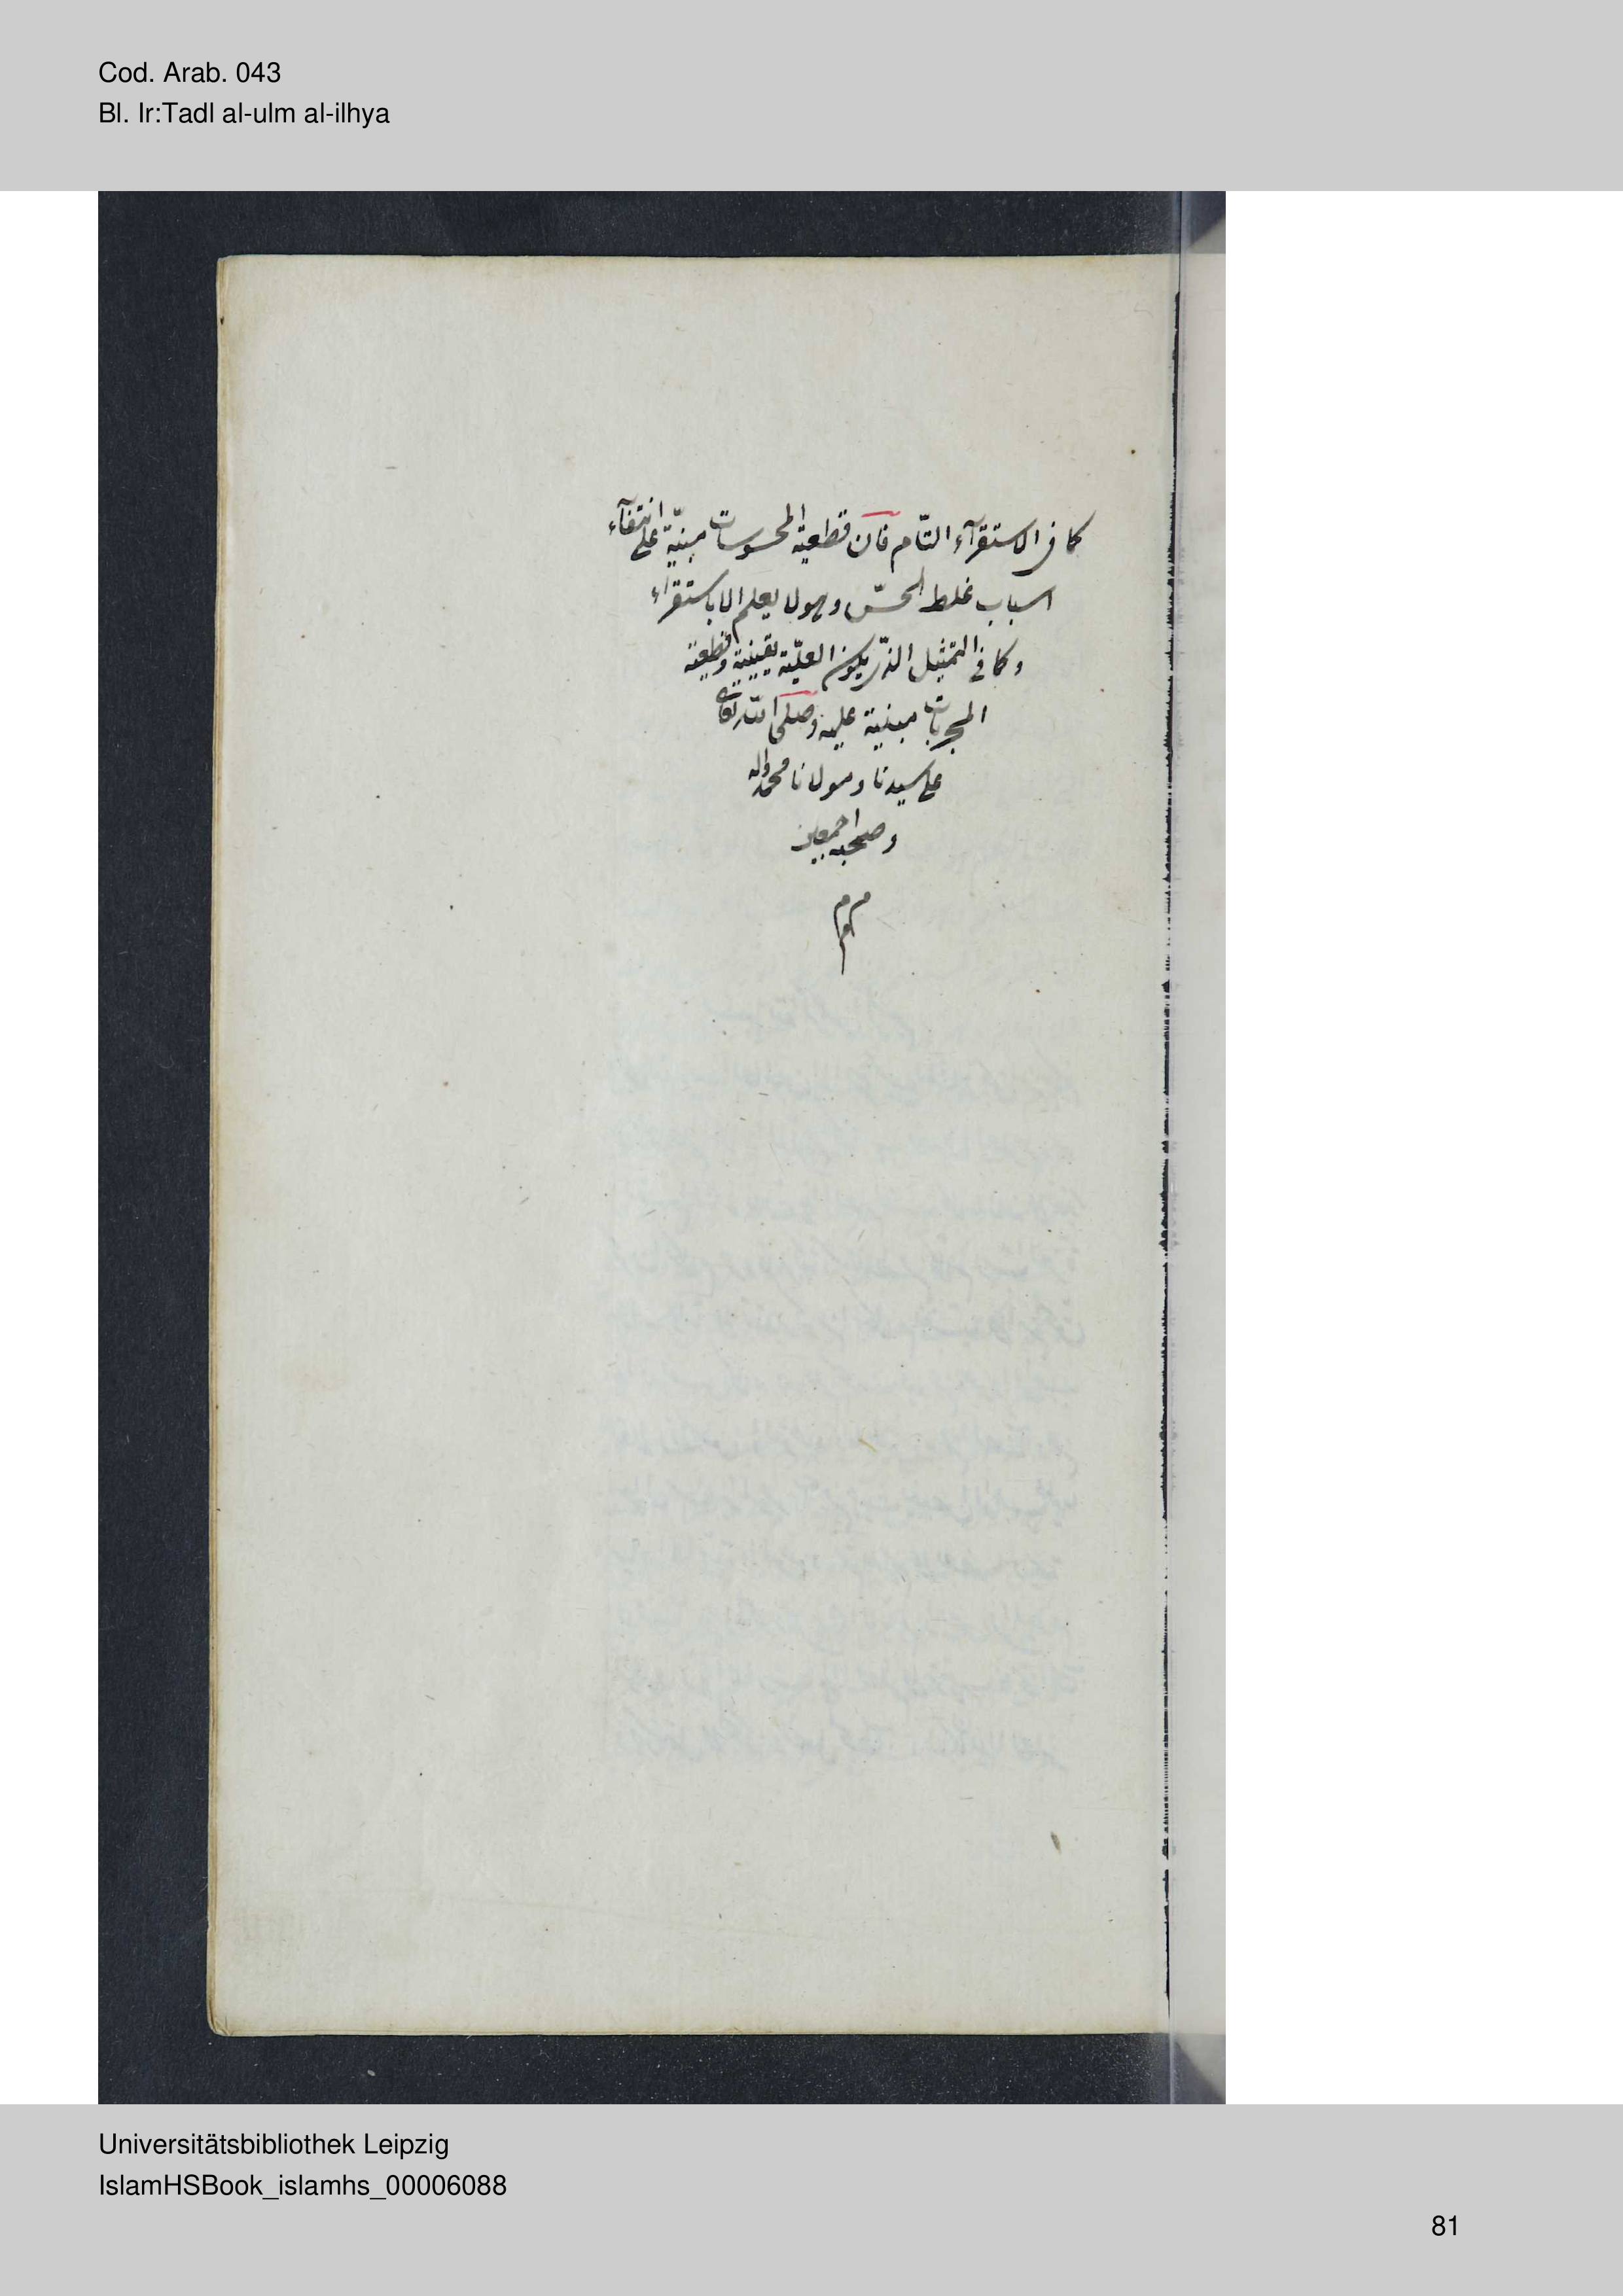 Cod. Arab. 043
Bl. Ir:Tadl al-ulm al-ilhya
كما فى الاستقرآء التّام فان قطعية المحسوسات مبنيّة على انتفآء
اسباب غلط الحسّ وهو لا يعلم الا باستقراء
وكما فى التمثيل الذى يكون العليّة يقينية وقطعية
المجربات مبنية عليه وصلى الله تعالى
على سيدنا ومولانا محمد واله
وصحبه اجمعين
Universitätsbibliothek Leipzig
IslamHSBook_islamhs_00006088
81